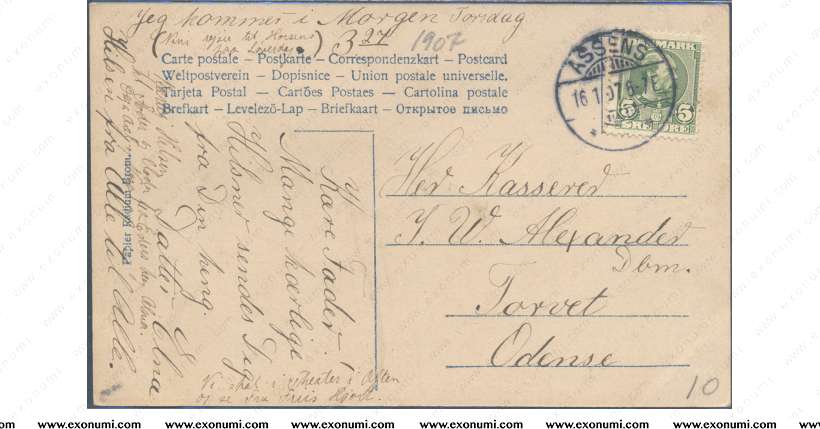 Jeg kommer i Morgen Torsdag
3 27
1907
Carte postale – Postkarte – Correspondenzkart – Postcard
Weltpostverein – Dopisnice – Union postale universelle.
Tarjeta Postal – Cartões Postaes – Cartolina postale
Brefkart – Levelező-Lap – Briefkaart – Открытое письмо
ASSENS
16.1.07
DANMARK
5 5
ØRE
Kære Fader!
Mange kærlige
Hilsner sendes Dig
fra Din heng.
Datter Elna
Hilsen fra Alle til Alle.
Vi skal i Theater i Aften
og se
Her Kasserer
J. W. Alexander
Dbm.
Torvet
Odense
10
www.exonumi.com www.exonumi.com www.exonumi.com www.exonumi.com www.exonumi.com